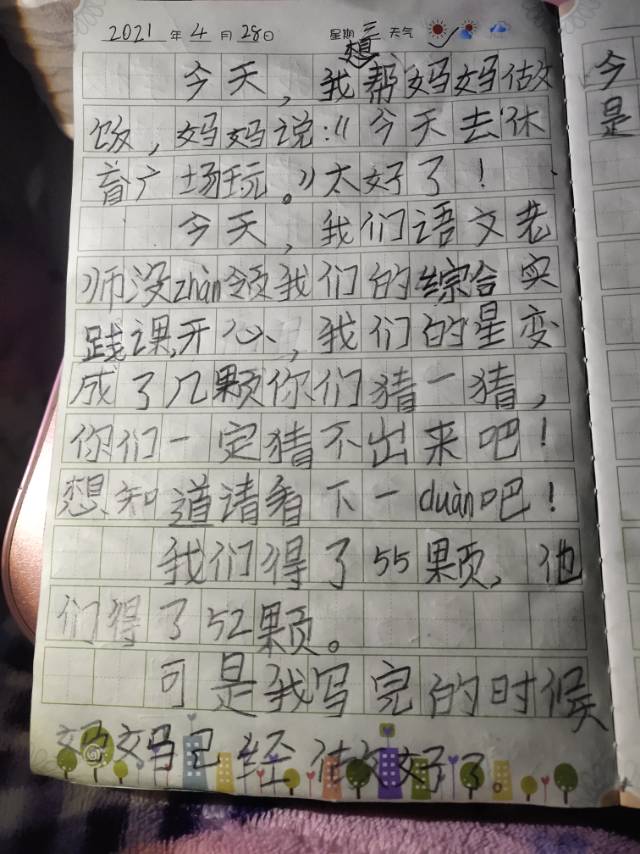 2021年4月28日 星期三 天气
今天,我想帮妈妈做
饭,妈妈说:“今天去休
育广场玩。”太好了!
今天,我们语文老
师没zhàn领我们的综合实
践课,开心,我们的星变
成了几颗你们猜一猜,
你们一定猜不出来吧!
想知道请看下一duàn吧!
我们得了55颗,他
们得了52颗。
可是我写完的时候
妈妈已经做好了。
今
是